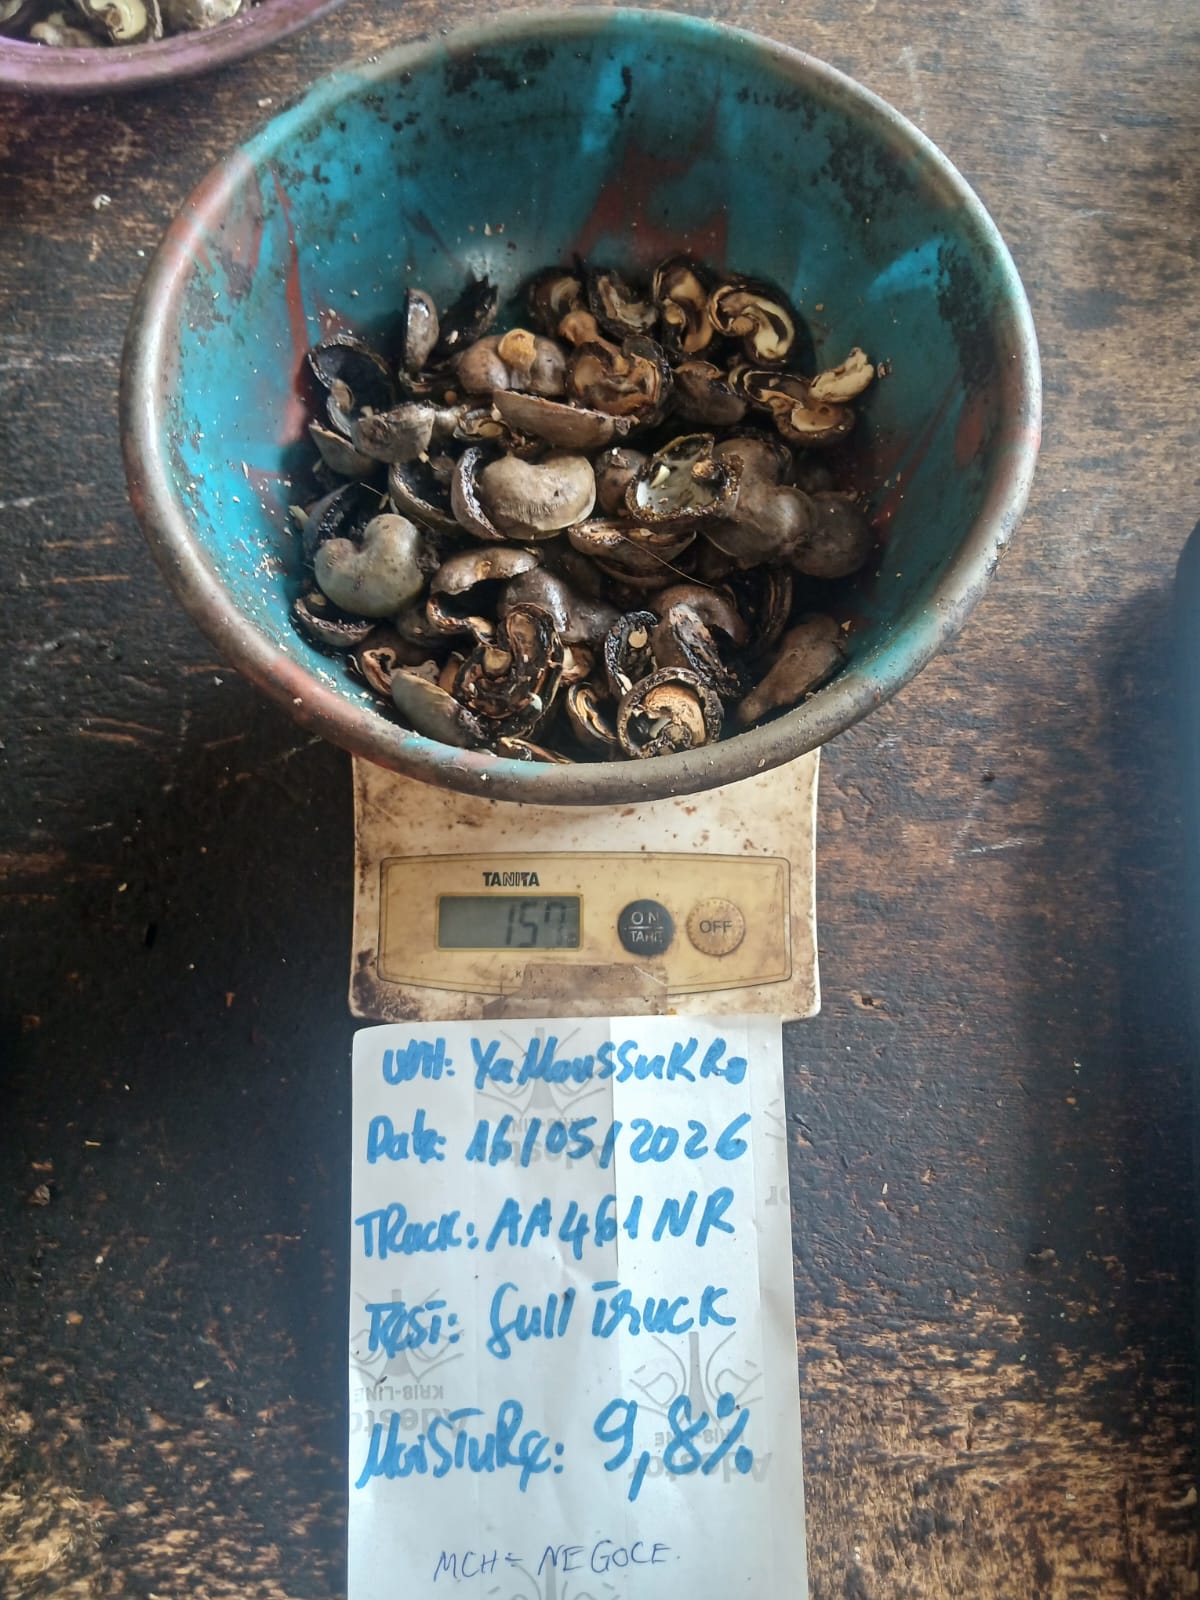 TANITA
157
ON
TARE
OFF
WH: YaMoussuKRo
Date: 16/05/2026
TRuck: AA461NR
TEST: full Truck
MoisTuRe: 9,8%
MCH = NEGOCE.
KRIS-LINE
Adestor